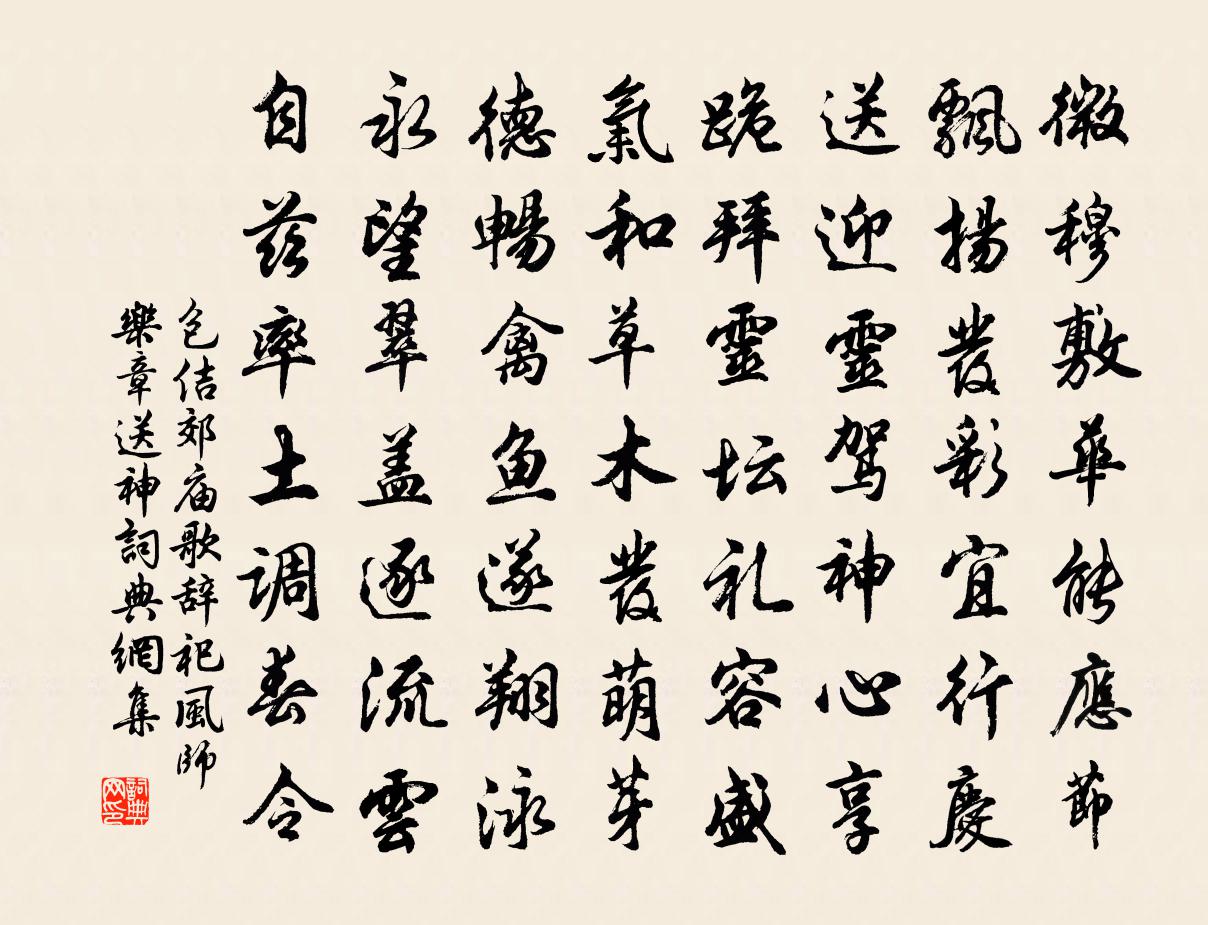 微穆敷華能應節
飄揚發彩宜行慶
送迎靈駕神心享
跪拜靈坛礼容盛
氣和草木發萌芽
德暢禽鱼遂翔泳
永望翠盖逐流雲
自兹率土调春令
包佶郊庙歌辞祀風師
樂章送神詞典網集
詞典网印